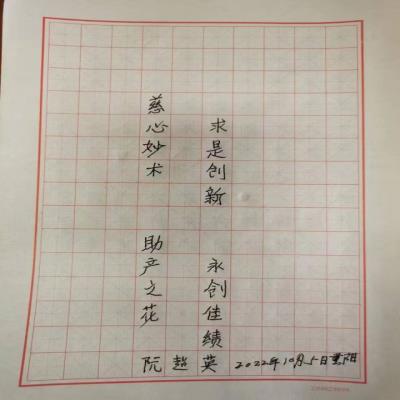 求是创新 永创佳绩
慈心妙术 助产之花
阮超英 2022年10月5日